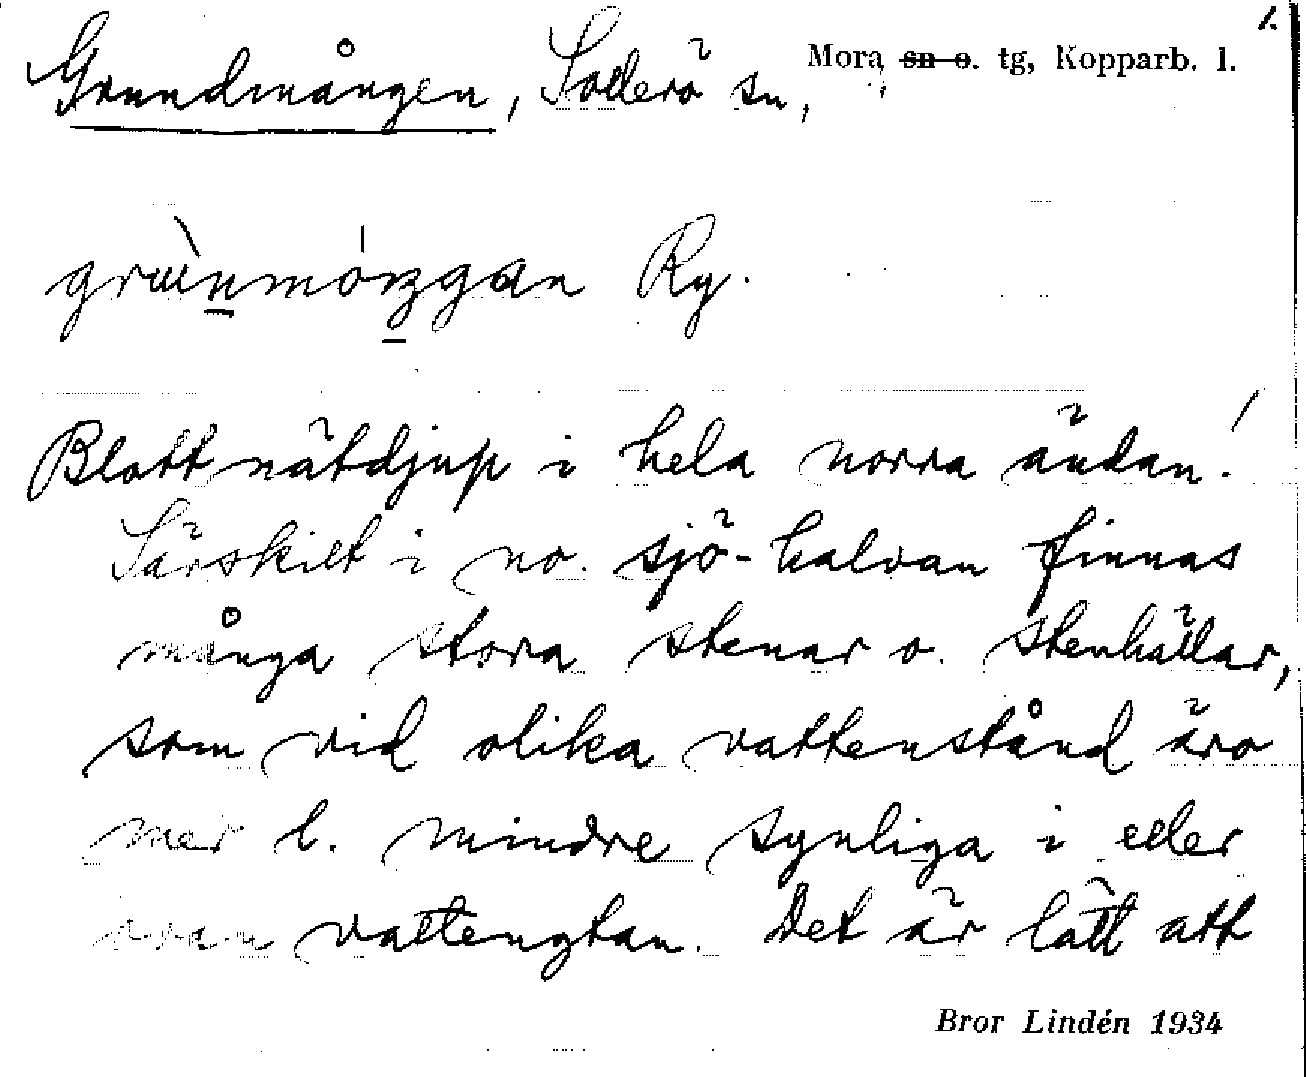 1.
Grundmången, Sollerö sn, Mora sn o. tg, Kopparb. l.
Ry.
Blott nätdjup i hela norra ändan!
Särskilt i no. sjö-halvan finnas
många stora stenar o. stenhällar,
som vid olika vattenstånd äro
mer l. mindre synliga i eller
ovan vattenytan. Det är lätt att
Bror Lindén 1934